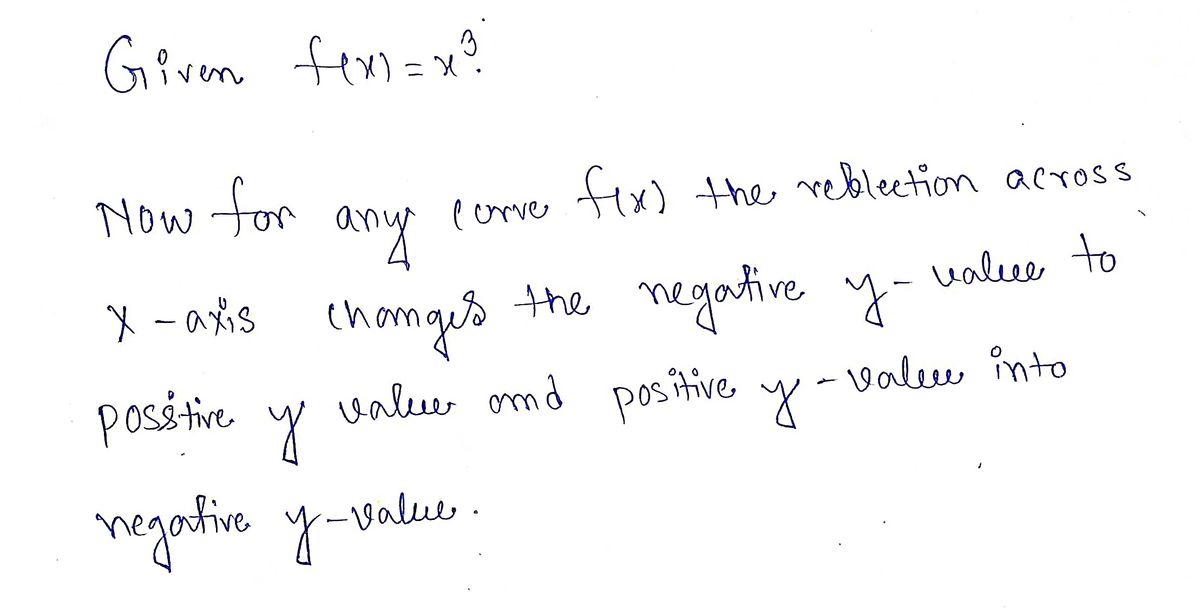 Given f(x) = x³.
Now for any curve f(x) the reflection across
x-axis changes the negative y-value to
positive y value and positive y-value into
negative y-value.